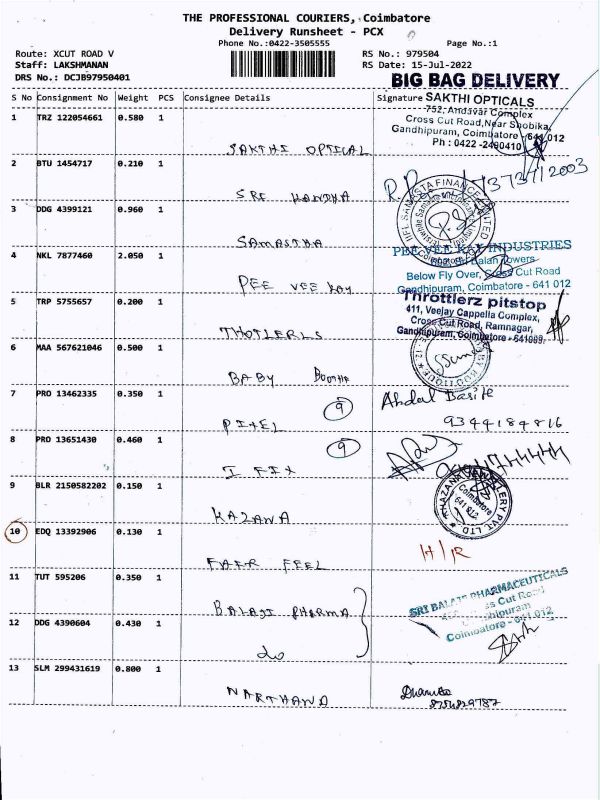 THE PROFESSIONAL COURIERS, Coimbatore
Delivery Runsheet - PCX
Phone No.:0422-3505555
Page No.:1
Route: XCUT ROAD V
RS No.: 979504
Staff: LAKSHMANAN
RS Date: 15-Jul-2022
DRS No.: DCJB97950401
BIG BAG DELIVERY
S No Consignment No Weight PCS Consignee Details Signature
SAKTHI OPTICALS
752, Andavar Complex
Cross Cut Road, Near Shobika,
Gandhipuram, Coimbatore - 641 012
Ph : 0422 -2490410
1 TRZ 122054661 0.580 1
SAKTHI OPTICAL
2 BTU 1454717 0.210 1
SRE
3 DDG 4399121 0.960 1
SAMASTHA
4 NKL 7877460 2.050 1
PEE VEE KAY INDUSTRIES
Below Fly Over, Cross Cut Road
Gandhipuram, Coimbatore - 641 012
PEE VEE KAY
5 TRP 5755657 0.200 1
Throttlerz pitstop
411, Veejay Cappella Complex,
Cross Cut Road, Ramnagar,
Gandhipuram, Coimbatore - 641009
THOTLERLS
6 MAA 567621046 0.500 1
BABY
7 PRO 13462335 0.350 1
9
Abdal Basite
PIXEL
9344184816
8 PRO 13651430 0.460 1
9
I FIX
9 BLR 2150582202 0.150 1
Coimbatore
641 012
KAZANA
10 EDQ 13392906 0.130 1
H/R
FAIR FEEL
11 TUT 595206 0.350 1
SRI BALAJI PHARMACEUTICALS
Cut Road
Coimbatore - 641 012
BALAJI PHARMA
12 DDG 4390604 0.430 1
do
13 SLM 299431619 0.800 1
NARTHANA